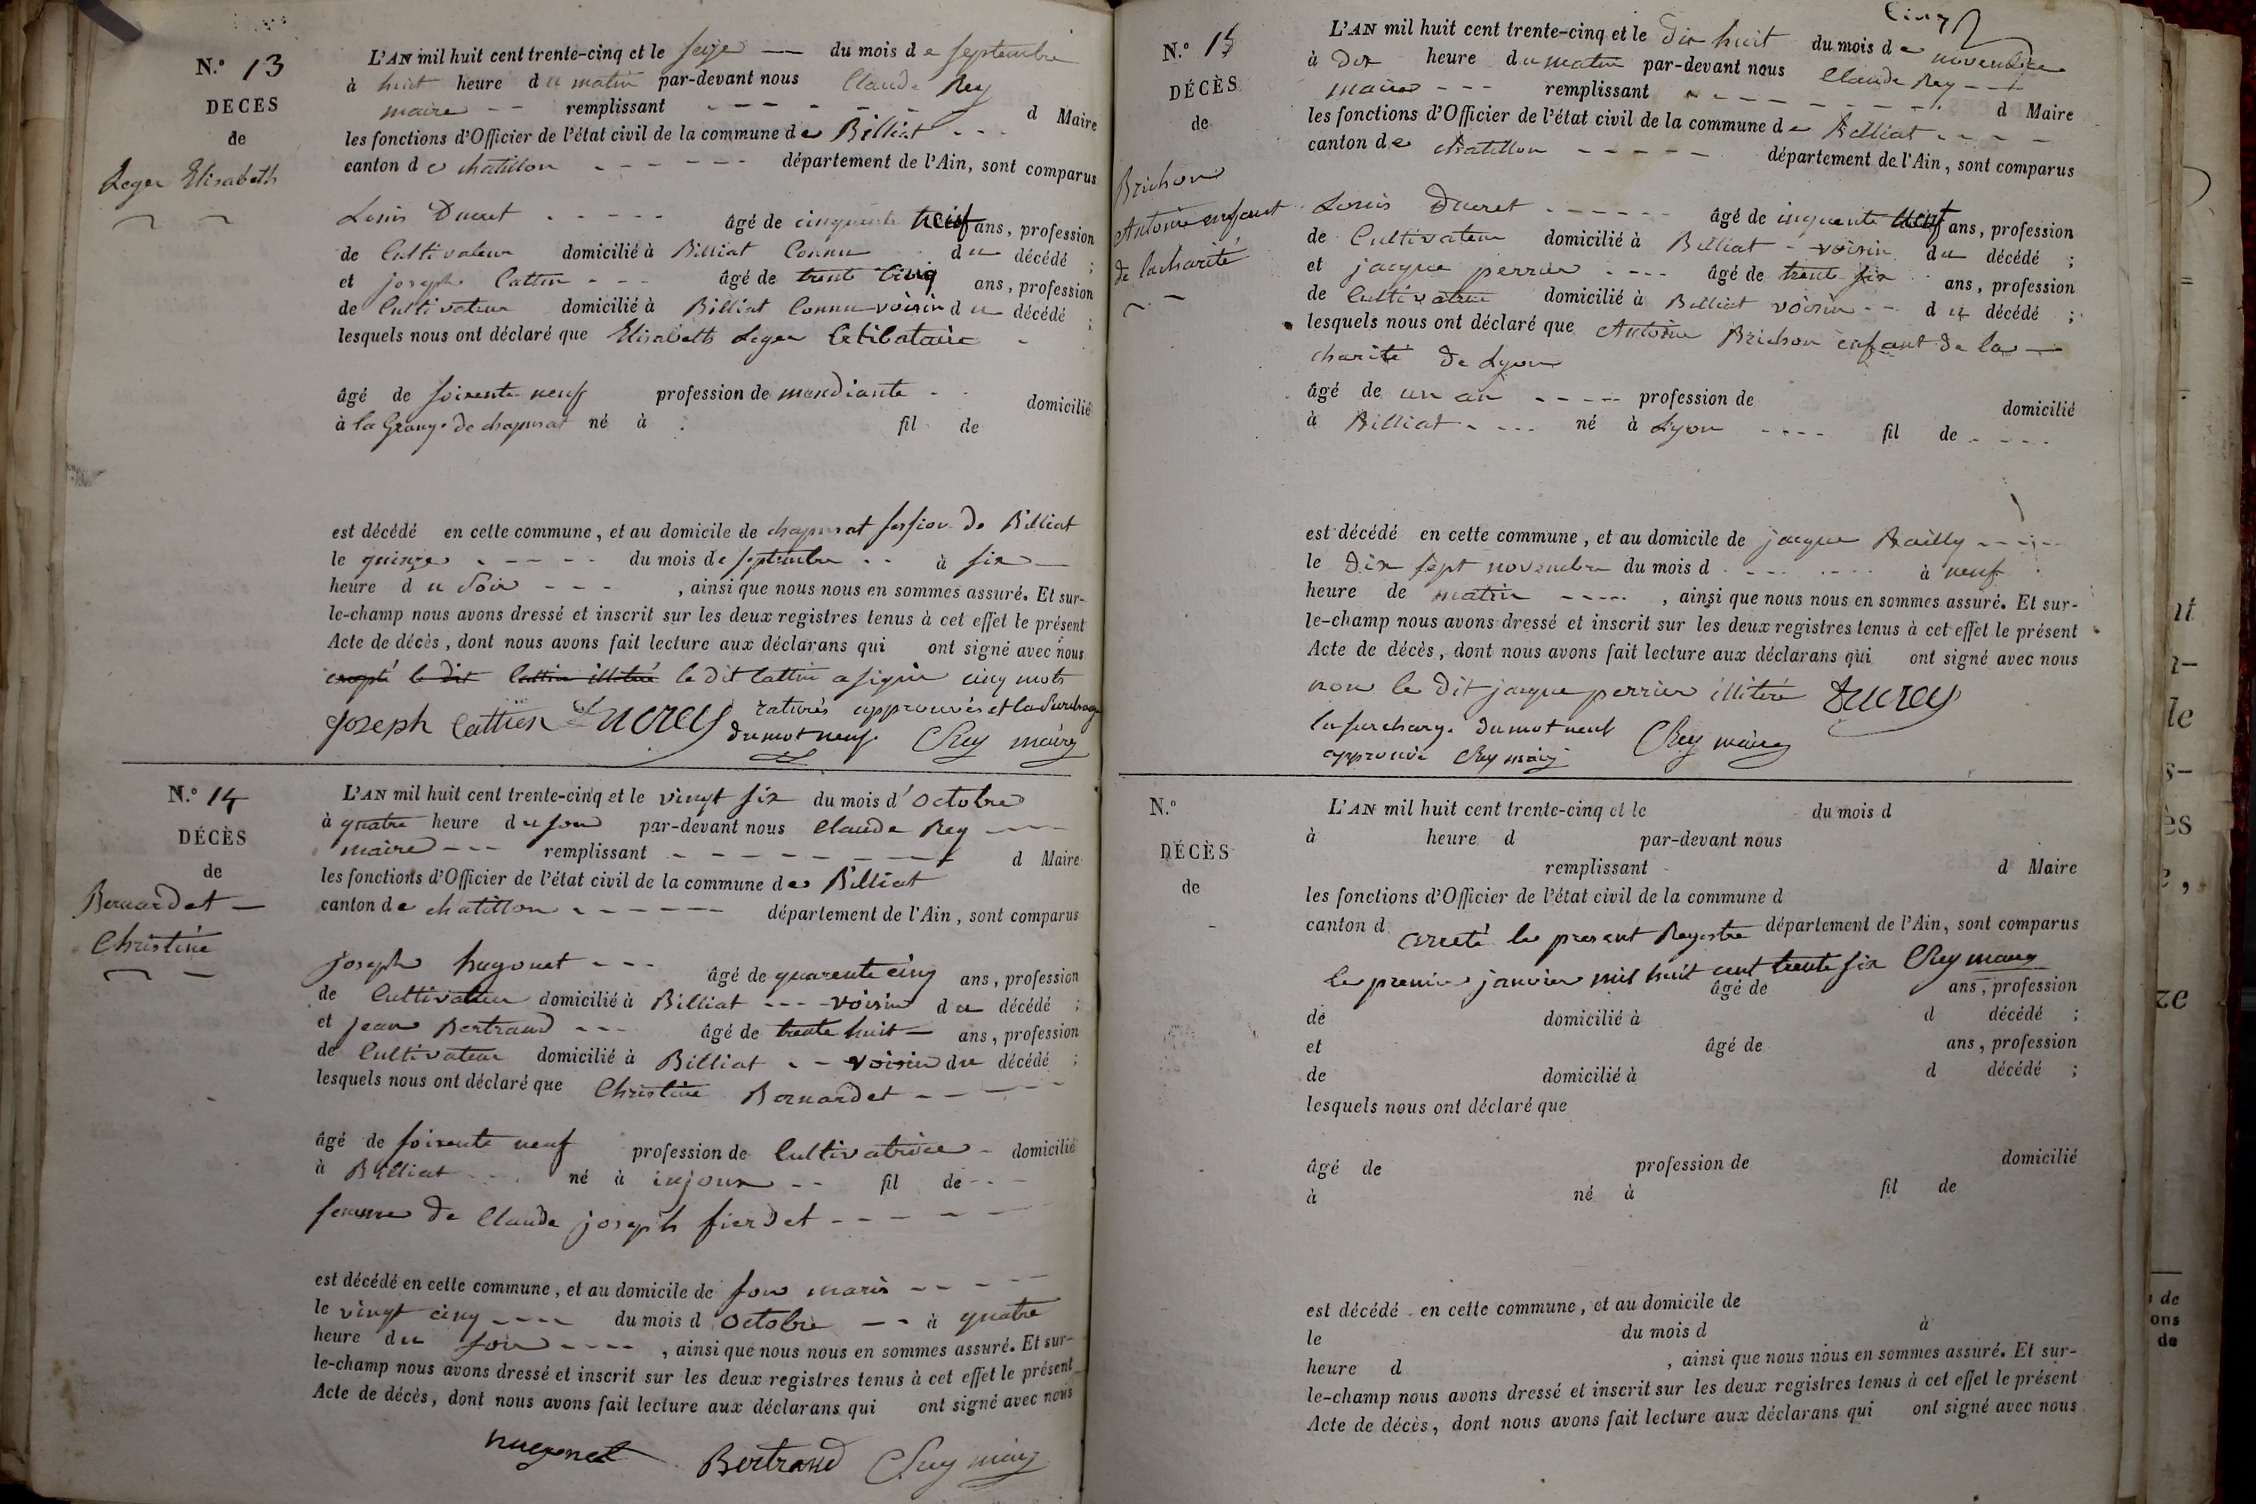 N.° 13
DÉCÈS
de
Leger Elisabeth
L'AN mil huit cent trente-cinq et le seize du mois de septembre
à huit heure du matin par-devant nous Claude Rey
maire remplissant d Maire
les fonctions d'Officier de l'état civil de la commune de Billiat
canton de chatillon département de l'Ain, sont comparus
Louis Ducret âgé de cinquante neuf ans, profession
de Cultivateur domicilié à Billiat Connu du décédé ;
et joseph Cattin âgé de trente Cinq ans, profession
de Cultivateur domicilié à Billiat Connu voisin du décédé ;
lesquels nous ont déclaré que Elisabeth Leger Celibataire
âgé de soixente neuf profession de mendiante domicilié
à la Grange de né à fil de
est décédé en cette commune, et au domicile de de Billiat
le quinze du mois de septembre à six
heure du Soir , ainsi que nous nous en sommes assuré. Et sur-
le-champ nous avons dressé et inscrit sur les deux registres tenus à cet effet le présent
Acte de décès, dont nous avons fait lecture aux déclarans qui ont signé avec nous
le dit cattin illitéré le dit Cattin a signé cinq mots
joseph Cattien Ducrey raturés approuvés et la Surcharge
du mot neuf. CRey maire
N.° 14
DÉCÈS
de
Bernardet
Christine
L'AN mil huit cent trente-cinq et le vingt six du mois d'octobre
à quatre heure du soir par-devant nous Claude Rey
maire remplissant d Maire
les fonctions d'Officier de l'état civil de la commune de Billiat
canton de chatillon département de l'Ain, sont comparus
joseph hugonet âgé de quarente cinq ans, profession
de Cultivateur domicilié à Billiat voisin du décédé ;
et jean Bertrand âgé de trente huit ans, profession
de Cultivateur domicilié à Billiat voisin du décédé ;
lesquels nous ont déclaré que Christine Bernardet
âgé de soixente neuf profession de Cultivatrice domicilié
à Billiat né à injoux fil de
femme de Claude joseph fierdet
est décédé en cette commune, et au domicile de son maris
le vingt cinq du mois d octobre à quatre
heure du soir , ainsi que nous nous en sommes assuré. Et sur-
le-champ nous avons dressé et inscrit sur les deux registres tenus à cet effet le présent
Acte de décès, dont nous avons fait lecture aux déclarans qui ont signé avec nous
hugonet Bertrand CRey maire
Cinq
N.° 15
DÉCÈS
de
Brichon
Antoine enfant
de la charité
L'AN mil huit cent trente-cinq et le dix huit du mois de novembre
à Dix heure du matin par-devant nous Claude Rey
maire remplissant d Maire
les fonctions d'Officier de l'état civil de la commune de Billiat
canton de chatillon département de l'Ain, sont comparus
Louis Ducret âgé de cinquente neuf ans, profession
de Cultivateur domicilié à Billiat voisin du décédé ;
et jacque perrier âgé de trente six ans, profession
de Cultivateur domicilié à Billiat voisin du décédé ;
lesquels nous ont déclaré que Antoine Brichon enfant de la
charité de Lyon
âgé de un an profession de domicilié
à Billiat né à Lyon fil de
est décédé en cette commune, et au domicile de jacque Bailly
le dix sept novembre du mois d à neuf
heure de matin , ainsi que nous nous en sommes assuré. Et sur-
le-champ nous avons dressé et inscrit sur les deux registres tenus à cet effet le présent
Acte de décès, dont nous avons fait lecture aux déclarans qui ont signé avec nous
non le dit jacque perrier illitéré Ducrey
la surcharge du mot neuf CRey maire
approuvé CRey maire
N.°
DÉCÈS
de
L'AN mil huit cent trente-cinq et le du mois d
à heure d par-devant nous
remplissant d Maire
les fonctions d'Officier de l'état civil de la commune d
canton d département de l'Ain, sont comparus
arreté le present Regestre
le premier janvier mil huit cent trente six CRey maire
âgé de ans, profession
de domicilié à d décédé ;
et âgé de ans, profession
de domicilié à d décédé ;
lesquels nous ont déclaré que
âgé de profession de domicilié
à né à fil de
est décédé en cette commune, et au domicile de
le du mois d à
heure d , ainsi que nous nous en sommes assuré. Et sur-
le-champ nous avons dressé et inscrit sur les deux registres tenus à cet effet le présent
Acte de décès, dont nous avons fait lecture aux déclarans qui ont signé avec nous